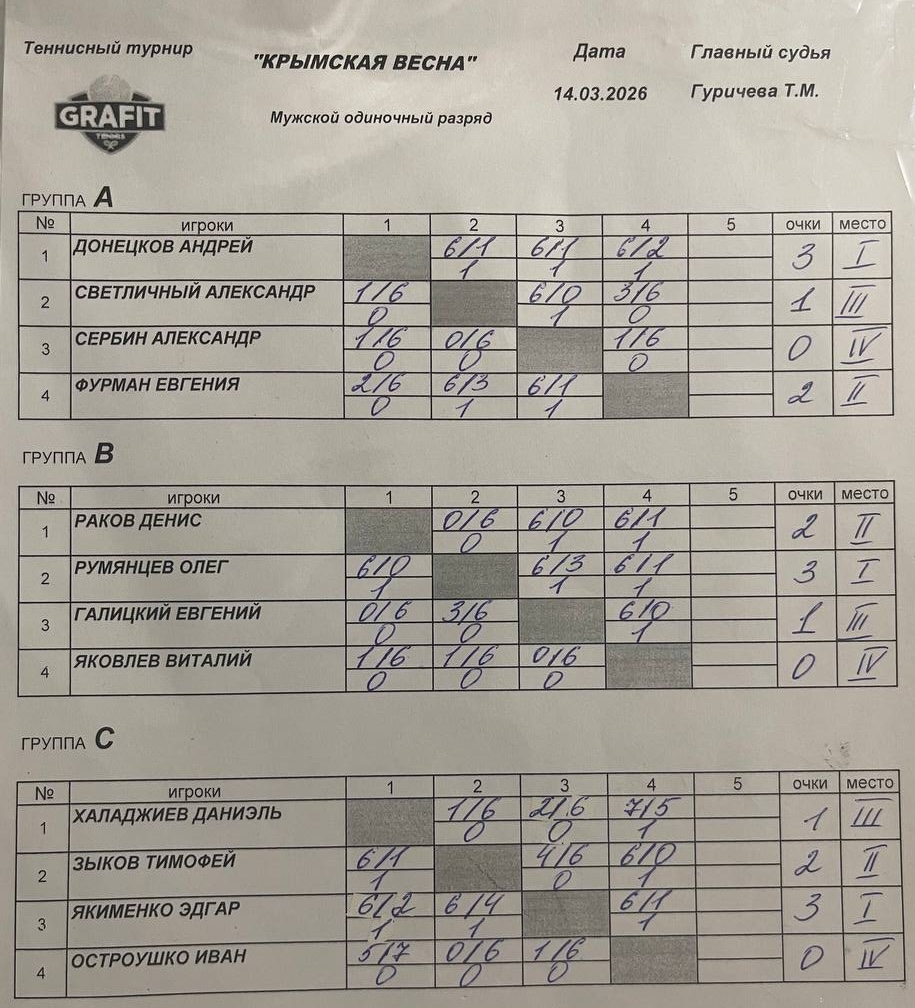 Теннисный турнир "КРЫМСКАЯ ВЕСНА" Дата Главный судья
GRAFIT
TENNIS
Мужской одиночный разряд 14.03.2026 Гуричева Т.М.
ГРУППА A
№ игроки 1 2 3 4 5 очки место
1 ДОНЕЦКОВ АНДРЕЙ 6/1 6/1 6/2 3 I
1 1 1
2 СВЕТЛИЧНЫЙ АЛЕКСАНДР 1/6 6/0 3/6 1 III
0 1 0
3 СЕРБИН АЛЕКСАНДР 1/6 0/6 1/6 0 IV
0 0 0
4 ФУРМАН ЕВГЕНИЯ 2/6 6/3 6/1 2 II
0 1 1
ГРУППА B
№ игроки 1 2 3 4 5 очки место
1 РАКОВ ДЕНИС 0/6 6/0 6/1 2 II
0 1 1
2 РУМЯНЦЕВ ОЛЕГ 6/0 6/3 6/1 3 I
1 1 1
3 ГАЛИЦКИЙ ЕВГЕНИЙ 0/6 3/6 6/0 1 III
0 0 1
4 ЯКОВЛЕВ ВИТАЛИЙ 1/6 1/6 0/6 0 IV
0 0 0
ГРУППА C
№ игроки 1 2 3 4 5 очки место
1 ХАЛАДЖИЕВ ДАНИЭЛЬ 1/6 2/6 7/5 1 III
0 0 1
2 ЗЫКОВ ТИМОФЕЙ 6/1 4/6 6/0 2 II
1 0 1
3 ЯКИМЕНКО ЭДГАР 6/2 6/4 6/1 3 I
1 1 1
4 ОСТРОУШКО ИВАН 5/7 0/6 1/6 0 IV
0 0 0